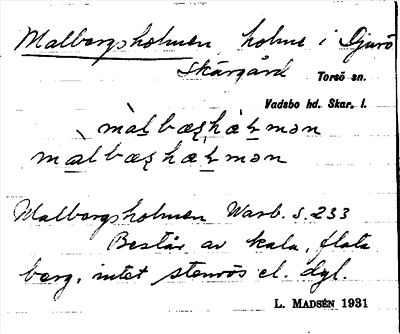 Malbergsholmen, holme i Djurö
Skärgård Torsö sn.
Vadsbo hd. Skar. l.
Malbergsholmen Warb. s. 233
Består av kala, flata
berg, intet stenrös el. dyl.
L. MADSÉN 1931